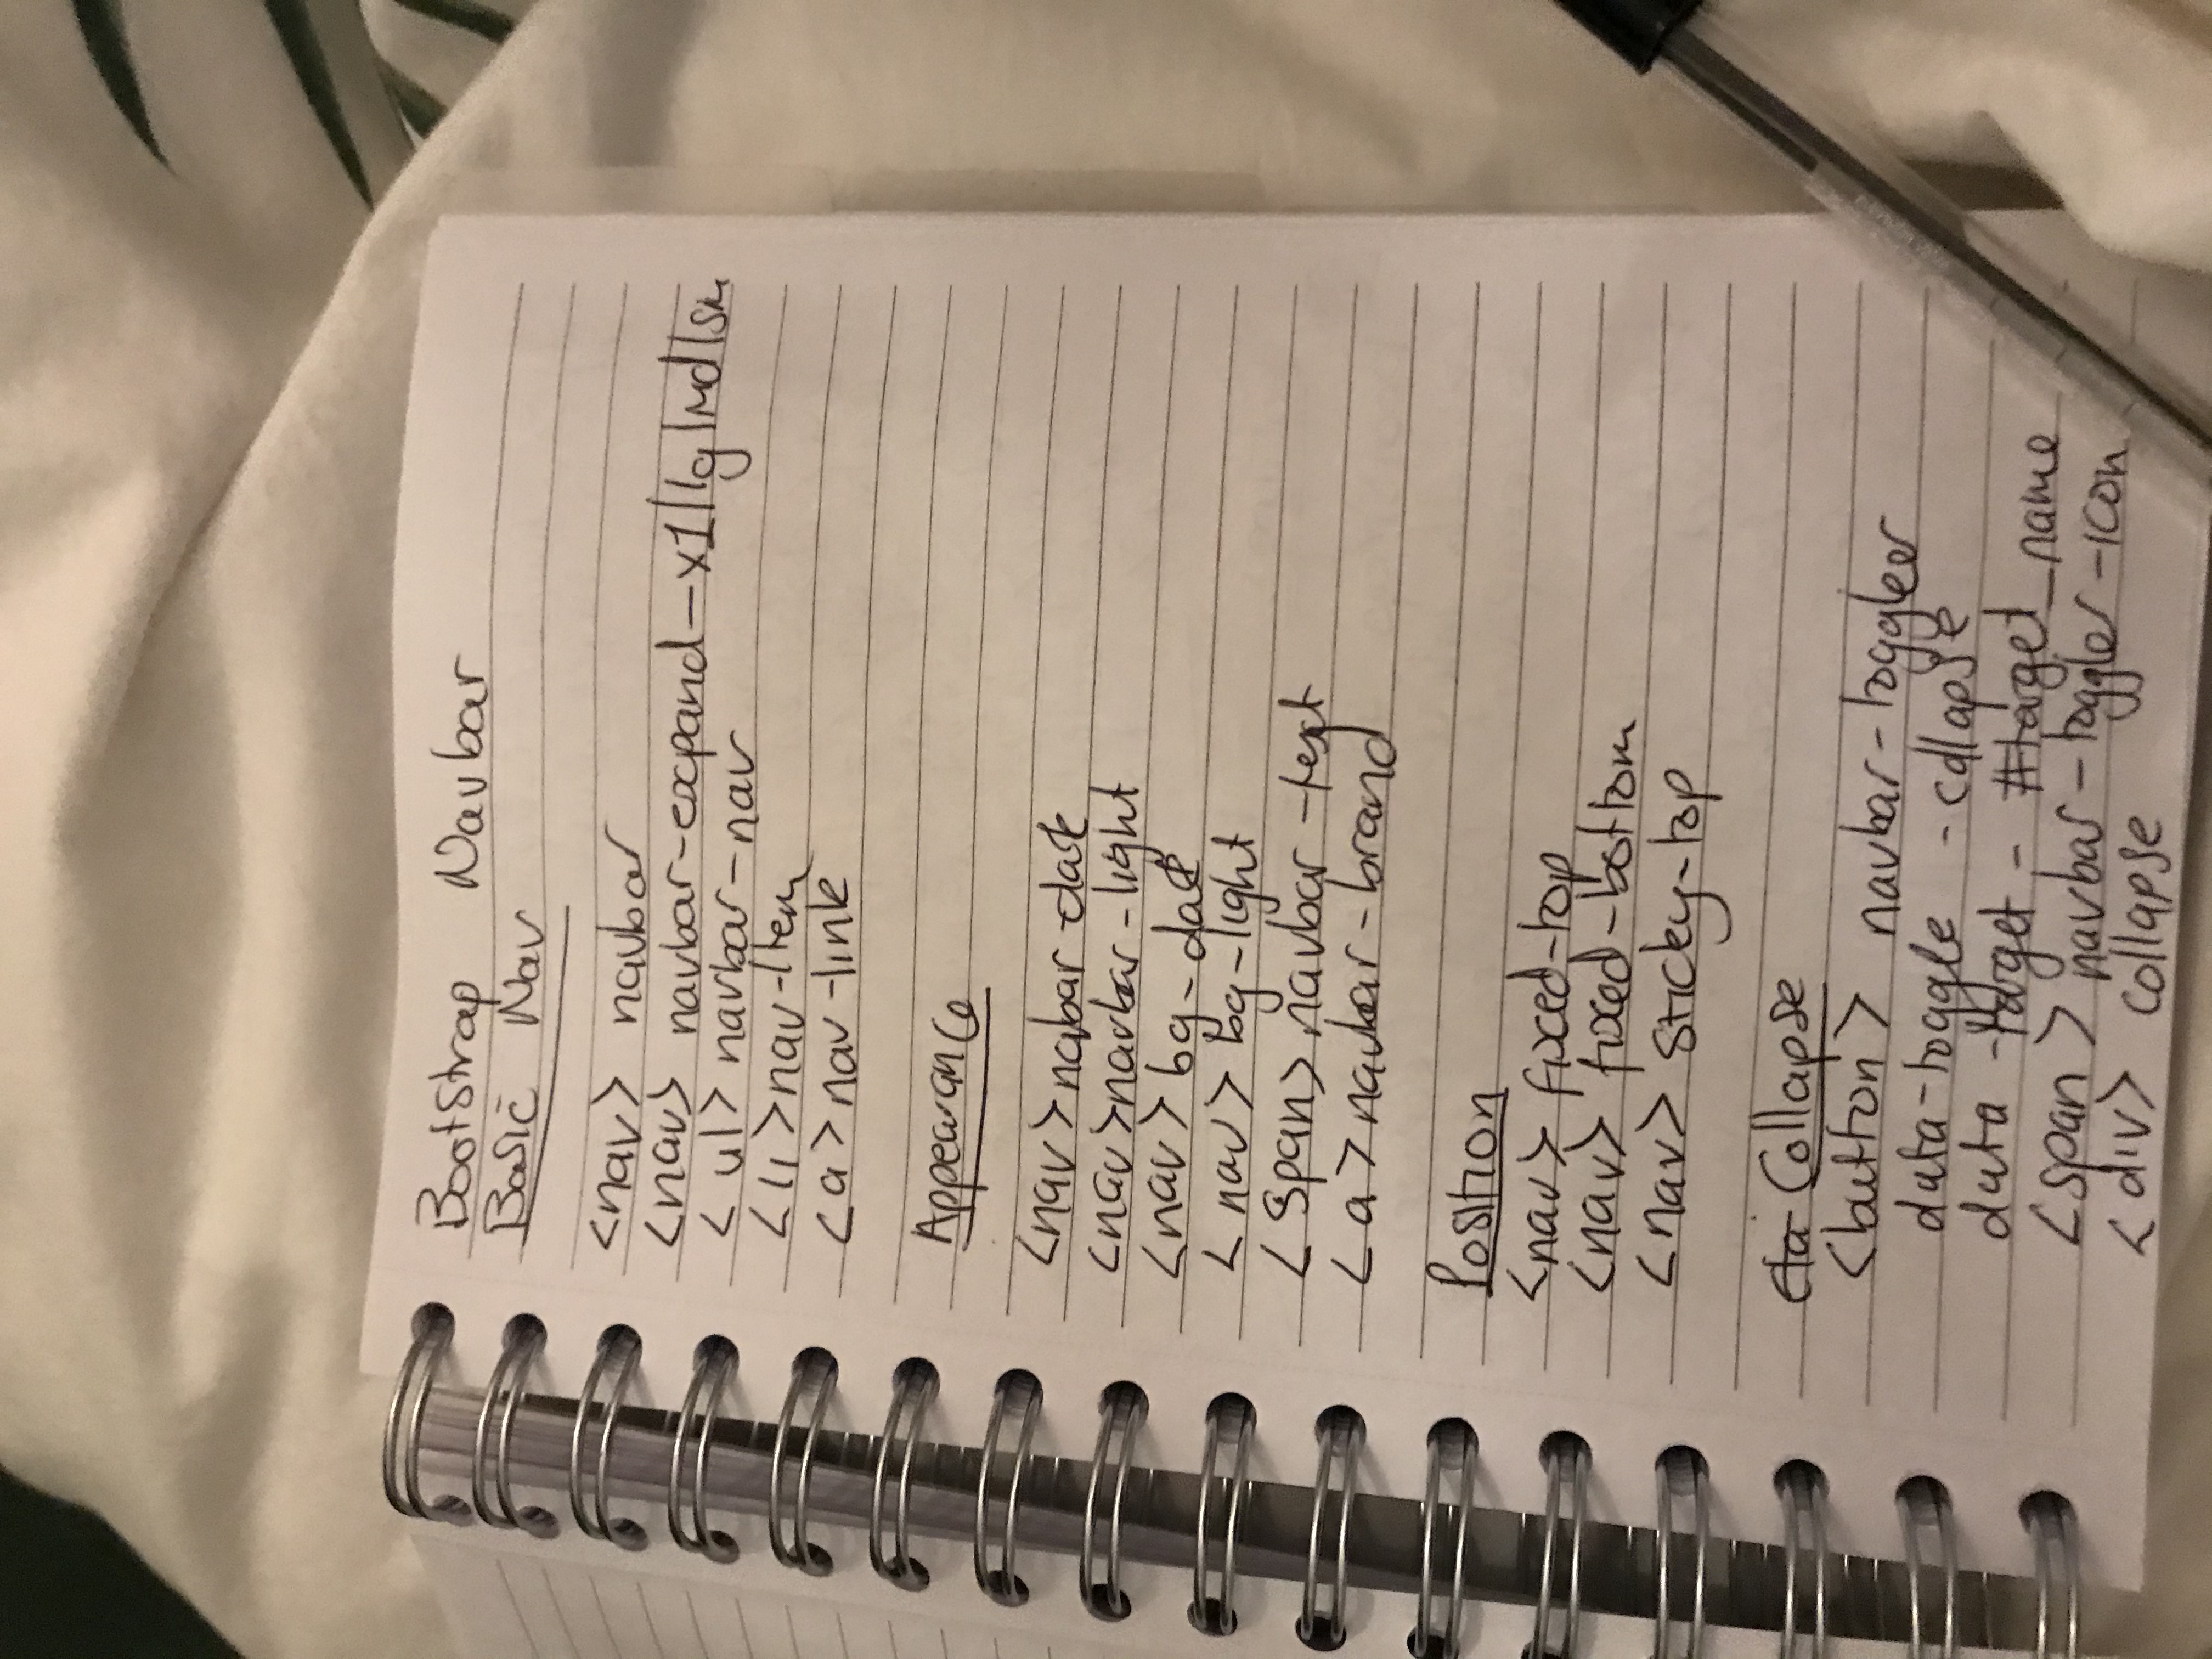 BootStrap Navbar
Basic Nav
<nav> navbar
<nav> navbar-expand-x1|lg|md|sm
<ul> navbar-nav
<li>nav-Item
<a>nav-link
Appearance
<nav>nabar-dark
<nav>navbar-light
<nav> bg-dark
<nav> bg-light
<span> navbar-text
<a>navbar-brand
Position
<nav> fixed-top
<nav> fixed-bottom
<nav> sticky-top
Collapse
<button> navbar-toggler
data-toggle - collapse
data-target - #target_name
<span> navbar-toggler-icon
<div> collapse